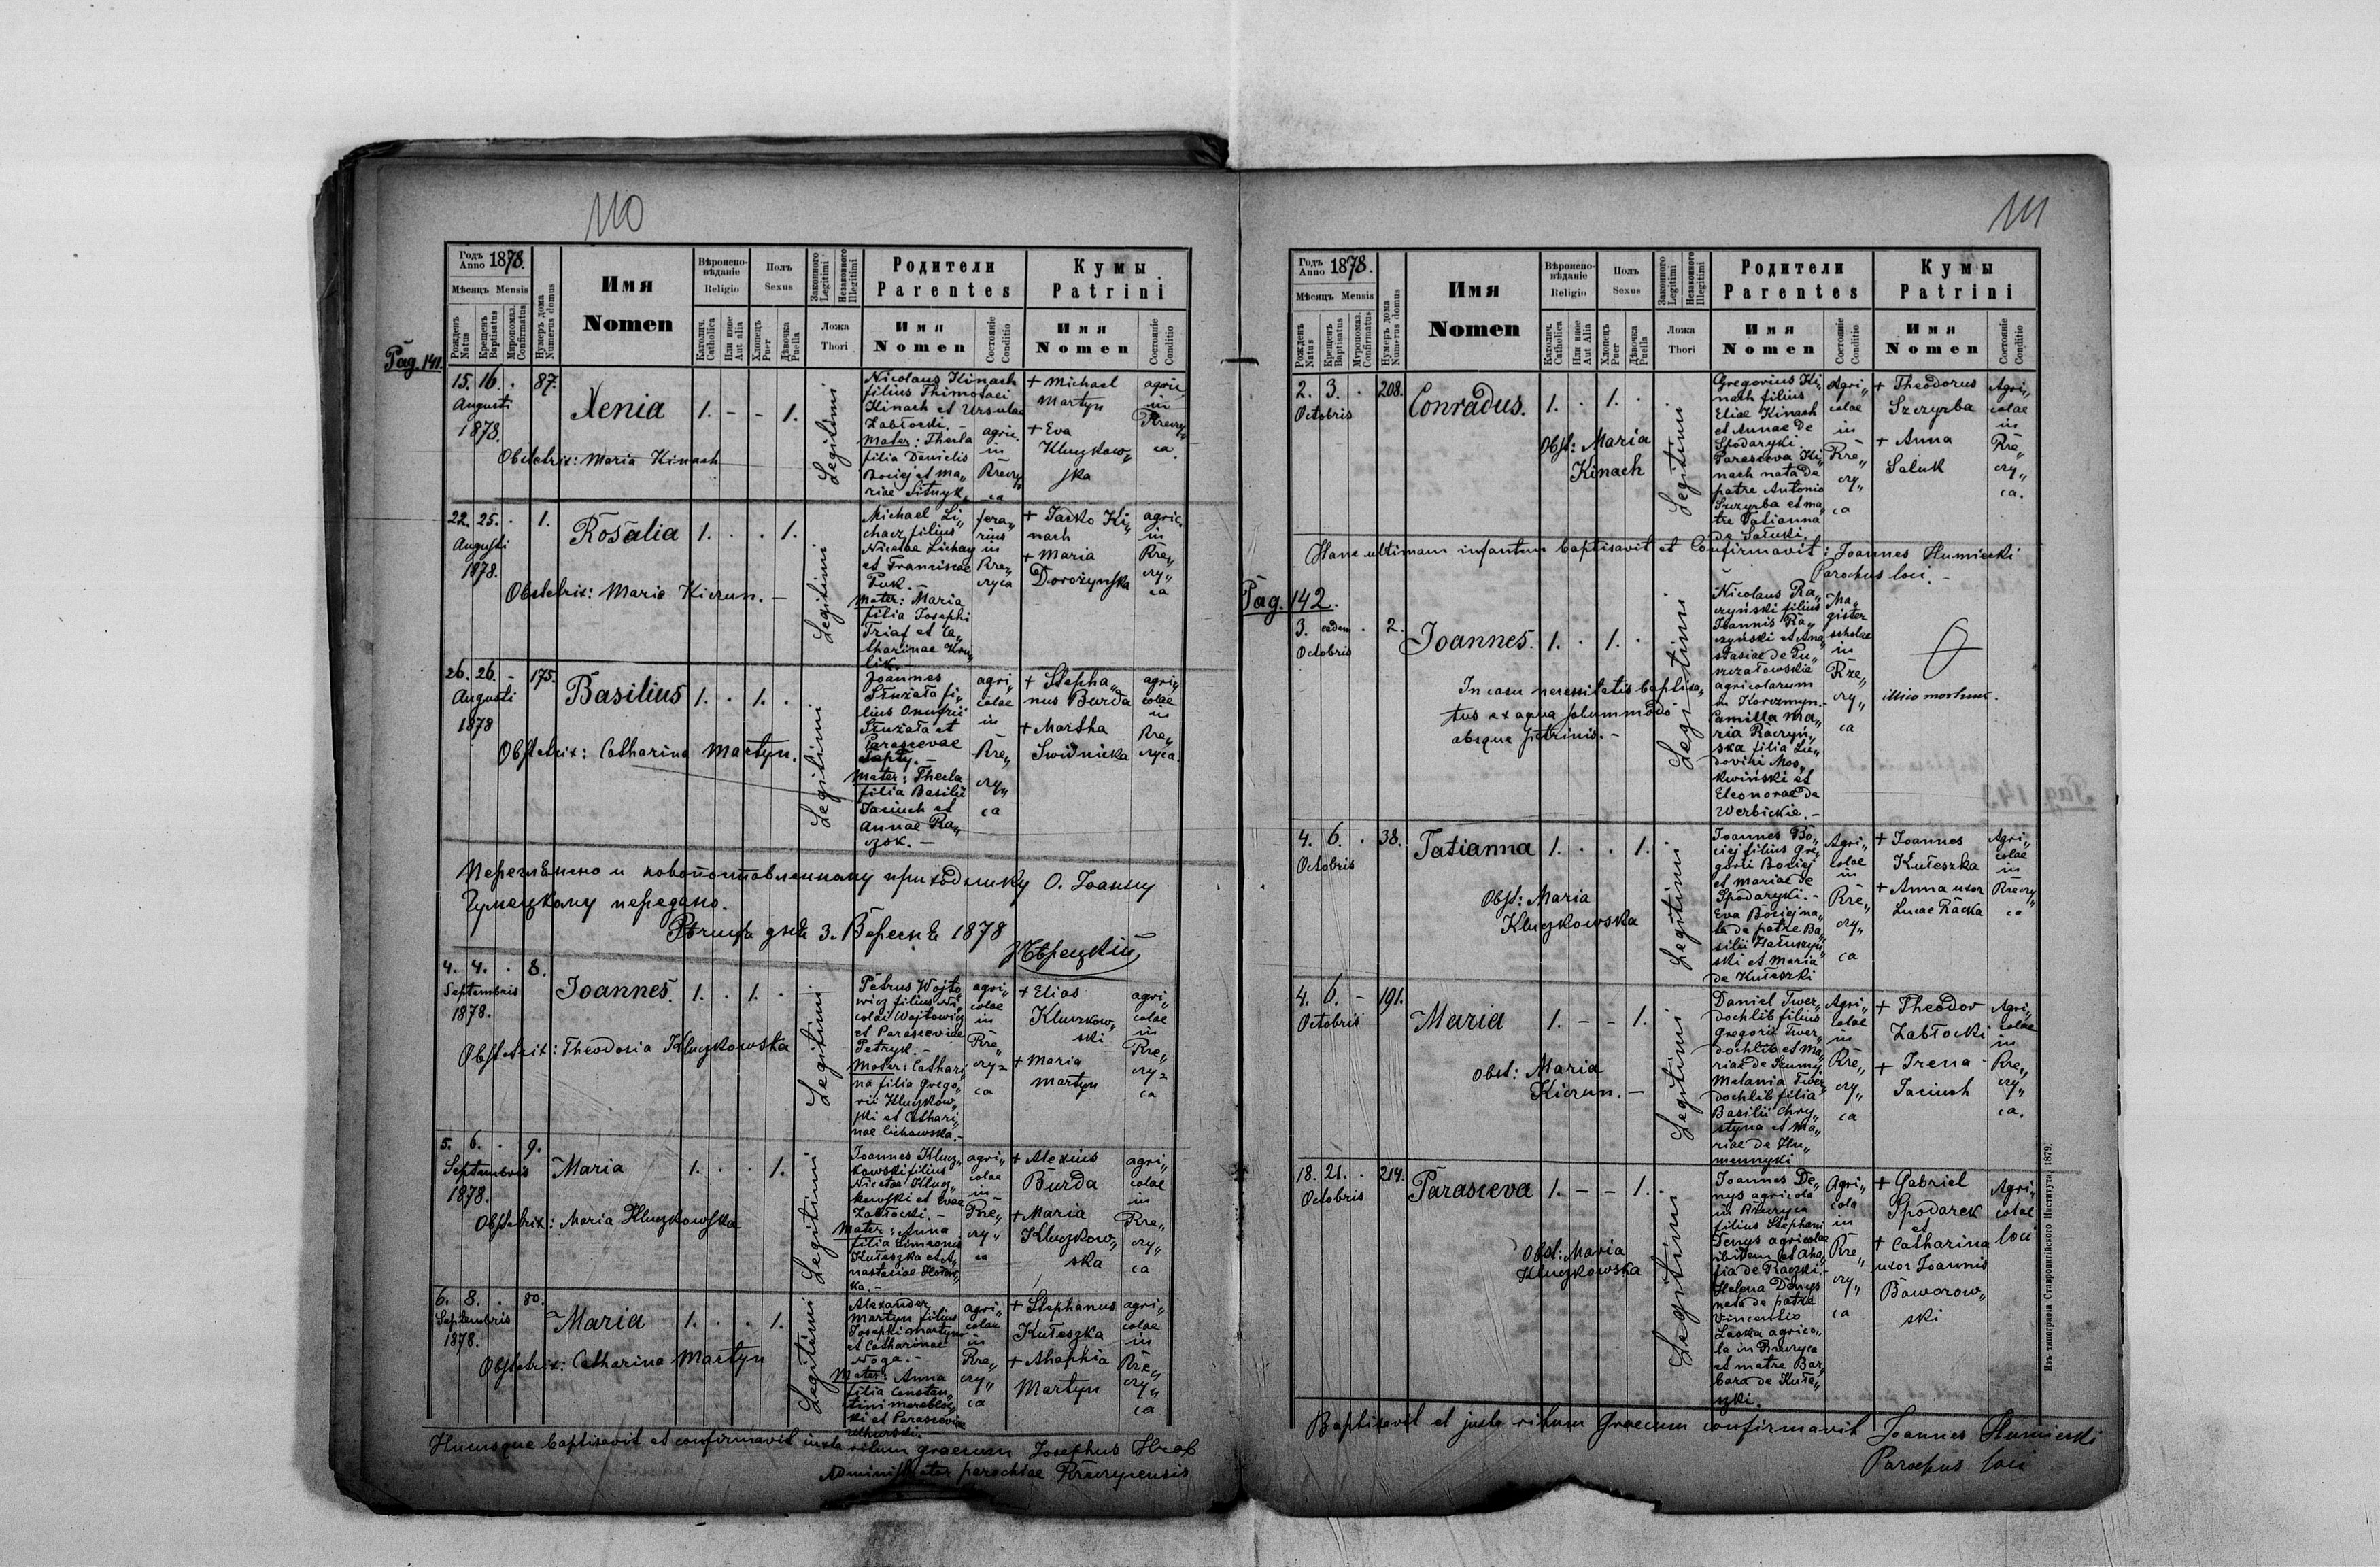 110
Pag. 141.
Годъ Anno 1878.
Мѣсяцъ Mensis
Рожденъ Natus
Крещенъ Baptisatus
Миропомаз. Confirmatus
Нумеръ дома Numerus domus
Имя
Nomen
Вѣроисповѣданіе
Religio
Католич. Catholica
Или иное Aut alia
Полъ
Sexus
Хлопецъ Puer
Дѣвочка Puella
Законного Legitimi
Незаконного Illegitimi
Ложа
Thori
Родители
Parentes
Имя
Nomen
Состояніе Conditio
Кумы
Patrini
Имя
Nomen
Состояніе Conditio
15. 16. . 87.
Augusti
1878.
Xenia
1. - - 1.
Obstetrix: Maria Kinach
Legitimi
Nicolaus Kinach
filius Thimothei
Kinach et Ursulae
Zabłocki. -
Mater: Thecla
filia Danielis
Bociej et Ma„
riae Sitnyk.
agric.
in
Kreczy„
ca
+ Michael
Martyn
+ Eva
Kluczkow„
ska
agric.
in
Kreczy„
ca.
22. 25. . 1.
Augusti
1878.
Rosalia
1. . . 1.
Obstetrix: Maria Kierun. -
Legitimi
Michael Li„
chacz filius
Nicolae Lichacz
et Franciscae
Puk. -
Mater: Maria
filia Josephi
Triaf et Ca„
tharinae Kru„
lik. -
+ Jacko Ki„
nach
+ Maria
Dorożynska
agric.
in
Kre„
czy„
ca
26. 26. - 175.
Augusti
1878
Basilius
1. . 1. .
Obstetrix: Catharina Martyn.
Legitimi
Joannes
Służała fi„
lius Onufrii
Służała et
Parascevae
Mater: Thecla
filia Basilii
Jaciuch et
Annae Ra„
czok. -
agri„
colae
in
Kre„
czy„
ca
+ Stepha„
nus Burda
+ Martha
Swidnicka
agri„
colae
in
Kre„
czyca.
Перегляжено и новопоставленному приходнику О. Іоанну
Гумецкому передано.
дня 3. Вересня 1878
4. 4. . 8.
Septembris
1878.
Joannes.
1. . 1. .
Obstetrix: Theodosia Kluczkowska
Legitimi
Petrus Wojto„
wicz filius Ni„
colai Wojtowicz
et Parascevidae
Petryk. -
Mater: Cathari„
na filia Grego„
rii Kluczkow„
ski et Cathari„
nae Cichowska. -
agri„
colae
in
Kre„
czy=
ca
+ Elias
Kluczkow„
ski
+ Maria
Martyn
agri„
colae
in
Kre„
czy=
ca
5. 6. . 9.
Septembris
1878.
Maria
1. . . 1.
Obstetrix: Maria Kluczkowska
Legitimi
Joannes Klucz„
kowski filius
Nicetae Klucz„
kowski et Evae
Zabłocki. -
Mater: Anna
filia Simeonis
Kułeszka et A„
nastasiae
agri„
colae
in
Kre„
czy„
ca
+ Alexius
Burda
+ Maria
Kluczkow„
ska
agri„
colae
in
Kre„
czy„
ca
6. 8. . 80.
Septembris
1878.
Maria
1. . . 1.
Obstetrix: Catharina Martyn
Legitimi
Alexander
Martyn filius
Josephi Martyn
et Catharinae
Noga. -
Mater: Anna
filia Constan„
tini
et Parascevia
agri„
colae
in
Kre„
czy„
ca
+ Stephanus
Kułeszka
+ Ahaphia
Martyn
agri„
colae
in
Kre„
czy„
ca
Hucusque baptisavit et confirmavit iuxta ritum graecum Josephus Hrab
Administrator parochiae Kreczycensis
111
Годъ Anno 1878.
Мѣсяцъ Mensis
Рожденъ Natus
Крещенъ Baptisatus
Муропомаз. Confirmatus
Нумеръ дома Numerus domus
Имя
Nomen
Вѣроисповѣданіе
Religio
Католич. Catholica
Или иное Aut alia
Полъ
Sexus
Хлопецъ Puer
Дѣвочка Puella
Законного Legitimi
Незаконного Illegitimi
Ложа
Thori
Родители
Parentes
Имя
Nomen
Состояніе Conditio
Кумы
Patrini
Имя
Nomen
Состояніе Conditio
2. 3. . 208.
Octobris
Conradus.
1. . 1. .
Obst: Maria
Kinach
Legitimi
Gregorius Ki„
nach filius
Eliae Kinach
et Annae de
Spodaryki.
Parasceva Ki„
nach nata de
patre Antonio
Szczyrba et ma„
tre Tatianna
de Sałuki.
Agri„
colae
in
Kre„
czy„
ca
+ Theodorus
Szczyrba
+ Anna
Saluk
Agri„
colae
in
Kre„
czy„
ca.
Hanc ultimam infantem baptisavit et confirmavit: Joannes Humiecki
Parochus loci. -
Pag. 142.
3. eadem . 2.
Octobris
Joannes.
1. . 1. .
In casu necessitatis baptisa„
tus ex aqua solummodo
absque patrinis. -
Legitimi
Nicolaus Ra„
czyński filius
Joannis Ra„
czyński et Ana„
stasiae de Pu„
szczałowskie
agricolarum
in Korczmyn. -
Camilla Ma„
ria Raczyń„
ska filia Lu„
dovici Mos„
kwiński et
Eleonorae de
Werbickie. -
Ma„
gister
scholae
in
Kre„
czy„
ca
illico mortuus.
4. 6. . 38.
Octobris
Tatianna
1. . . 1.
Obst: Maria
Kluczkowska
Legitimi
Joannes Bo„
ciej filius Gre„
gorii Bociej
et Mariae de
Spodaryki. -
Eva Bociej na„
ta de patre Ba„
silii Hałuszyń„
ski et Maria
de Kułeszki
Agri„
colae
in
Kre„
czy„
ca
+ Joannes
Kułeszka
+ Anna uxor
Lucae Racka
Agri„
colae
in
Kreczy„
ca
4. 6. - 191.
Octobris
Maria
1. - - 1.
Obst: Maria
Kierun. -
Legitimi
Daniel Twer„
dochlib filius
Gregorii Twer„
dochlib et Ma„
riae de Szumy.
Melania Twer„
dochlib filia
Basilii Chry„
styna et Ma„
riae de Hu„
mennyki
Agri„
colae
in
Kre„
czy„
ca
+ Theodor
Zabłocki
+ Irena
Jaciuch
Agri„
colae
in
Kre„
czy„
ca.
18. 21. . 214.
Octobris
Parasceva
1. - - 1.
Obst: Maria
Kluczkowska
Legitimi
Joannes De„
nys agricola
in Kreczyca
filius Stephani
Denys agricolae
ibidem et Aha„
fia de Raczki. -
Helena Denys
nata de patre
Vincentio
Laska agrico„
la in Kreczyca
et matre Bar„
bara de Kułe„
szki.
Agri„
cola
in
Kre„
czy„
ca
+ Gabriel
Spodarek
et
+ Catharina
uxor Joannis
Baworow„
ski
Agri„
colae
loci
Baptisavit et juxta ritum Graecum confirmavit Joannes Humiecki
Parochus loci
Изъ типографіи Ставропигійского Института, 1879.